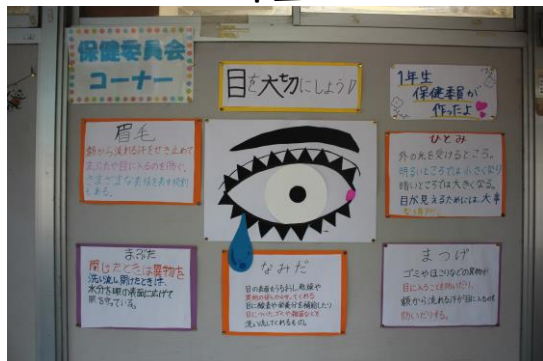 保健委員会
コーナー
目を大切にしよう♪
1年生
保健委員が
作ったよ
眉毛
額から流れる汗をせき止めて
目に入るのを防ぐ。
さまざまな表情を表す役割
もある。
ひとみ
外の光を受けるところ。
明るいところでは小さくなり
暗いところでは大きくなる。
目が見えるためには大事
まぶた
閉じたときは異物を
洗い流し開けたときは、
水分を眼の表面に広げて
眼を守っている。
なみだ
目の表面をうるおし、乾燥や
目に酸素や栄養分を補給したり
目についたゴミや細菌などを
洗い流してくれるもの。
まつげ
ゴミやほこりなどの異物が
目に入ることを防いだり、
額から流れる汗が目に入るのを
防いだりする。